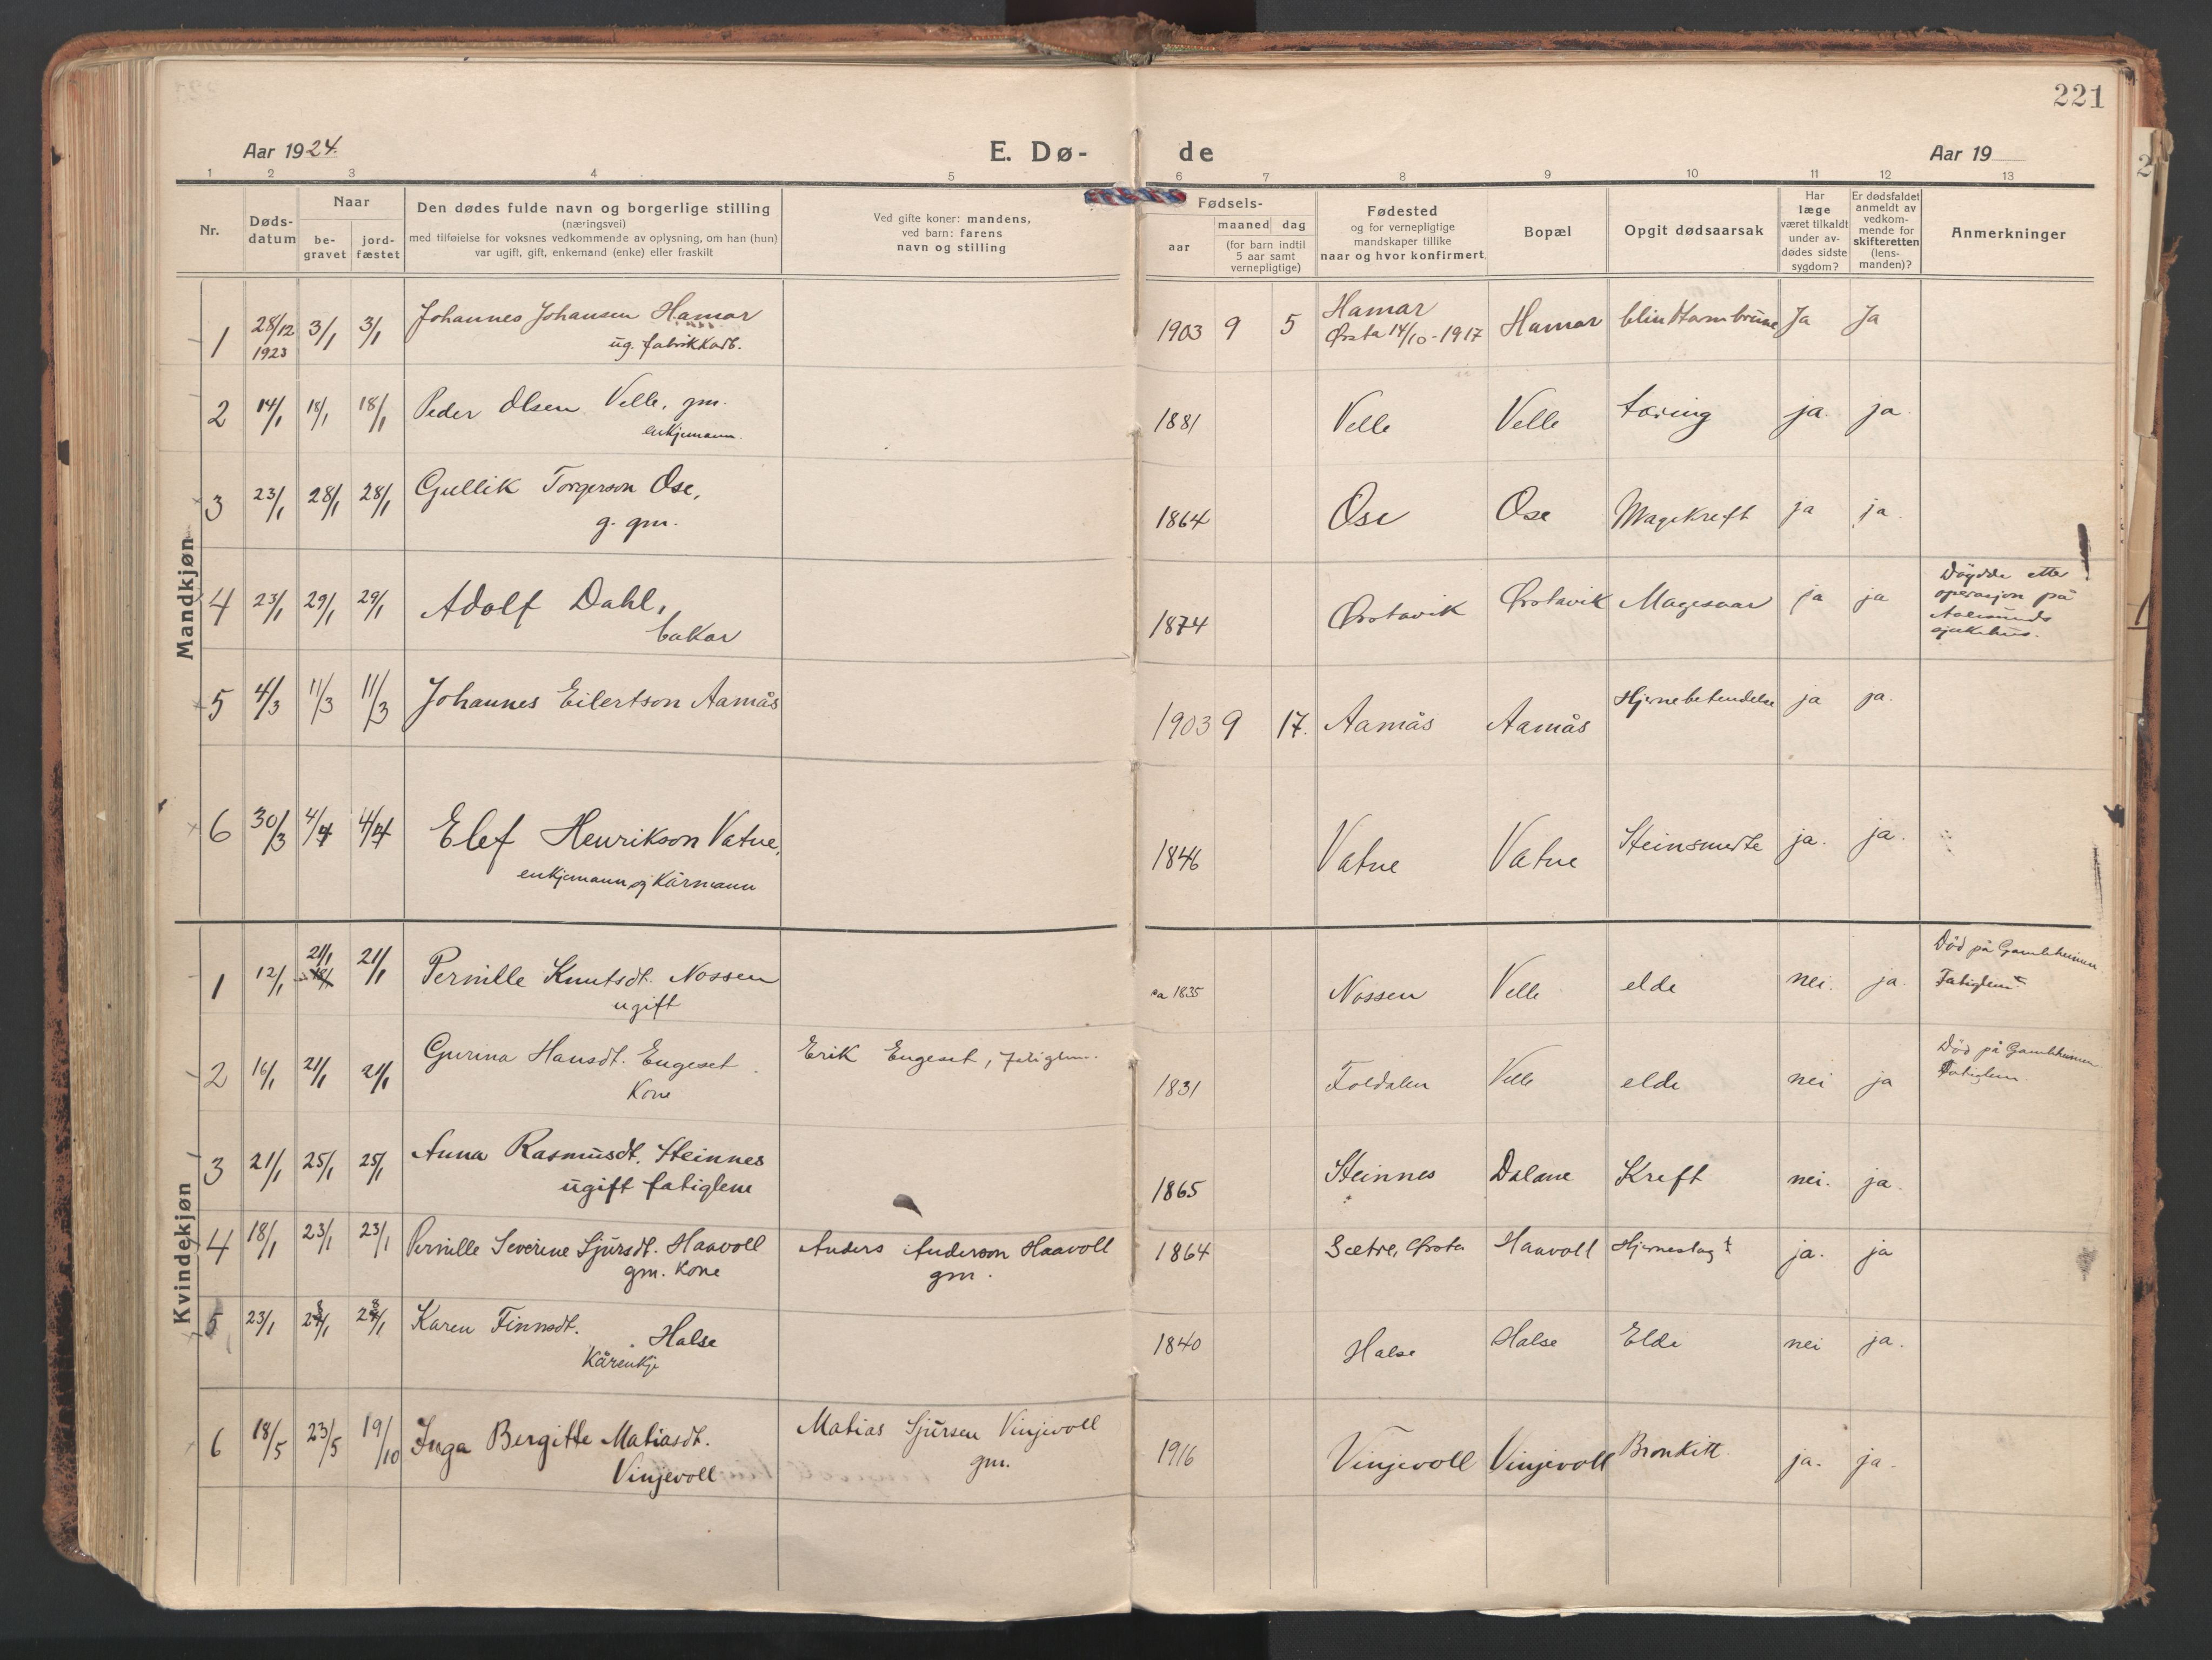 221
Aar 1924.
E. Dø-
de
Aar 19
1 2 3 4 5 6 7 8 9 10 11 12 13
Nr.
Døds-
datum
Naar
be-
gravet
jord-
fæstet
Den dødes fulde navn og borgerlige stilling
(næringsvei)
med tilføielse for voksnes vedkommende av oplysning, om han (hun)
var ugift, gift, enkemand (enke) eller fraskilt
Ved gifte koner: mandens,
ved barn: farens
navn og stilling
Fødsels-
aar
maaned dag
(for barn indtil
5 aar samt
vernepligtige)
Fødested
og for vernepligtige
mandskaper tillike
naar og hvor konfirmert.
Bopæl
Opgit dødsaarsak
Har
læge
været tilkaldt
under av-
dødes sidste
sygdom?
Er dødsfaldet
anmeldt av
vedkom-
mende for
skifteretten
(lens-
manden)?
Anmerkninger
Mandkjøn
1 28/12 3/1 3/1 Johannes Johansen Hamar 1903 9 5 Hamar Hamar blindtarmbrune Ja Ja
1923 ug. fabrikkarb. Ørsta 14/10-1917
2 14/1 18/1 18/1 Peder Olsen Velle, gm. 1881 Velle Velle tæring ja. ja.
enkjemann.
3 23/1 28/1 28/1 Gullik Torgerson Ose, 1864 Ose Ose Magekreft ja ja
g. gm.
4 23/1 29/1 29/1 Adolf Dahl, 1874 Ørstavik Ørstavik Magesaar ja ja Döydde etter
bakar operasjon på
Aalesunds
sjukehus.
5 4/3 11/3 11/3 Johannes Eilertson Aamås 1903 9 17. Aamås Aamås Hjernebetendelse ja ja.
6 30/3 4/4 4/4 Elef Henrikson Vatne, 1846 Vatne Vatne Steinsmerte ja. ja.
enkjemann og Kårmann
Kvindekjøn
1 12/1 21/1 21/1 Pernille Knutsdt. Nossen ca 1835 Nossen Velle elde nei. ja. Död på Gamleheimen
18/1 ugift Fatiglem
2 16/1 21/1 21/1 Gurina Hansdt. Engeset Erik Engeset, fatiglem. 1831 Foldalen Velle elde nei ja Död på Gamleheimen
Kone Fatiglem.
3 21/1 25/1 25/1 Anna Rasmusdt. Steinnes 1865 Steinnes Dalane Kreft nei. ja.
ugift fatiglem
4 18/1 23/1 23/1 Pernille Severine Sjursdt. Haavoll Anders Anderson Haavoll 1864 Sætre, Ørsta Haavoll Hjerneslag ja. ja
gm. Kone gm.
5 23/1 28/1 28/1 Karen Finnsdt. Halse 1840 Halse Halse Elde nei ja.
Kårenkje
6 18/5 23/5 19/10 Inga Bergitte Matiasdt. Matias Sjursen Vinjevoll 1916 Vinjevoll Vinjevoll Bronkitt. ja. ja.
Vinjevoll gm.